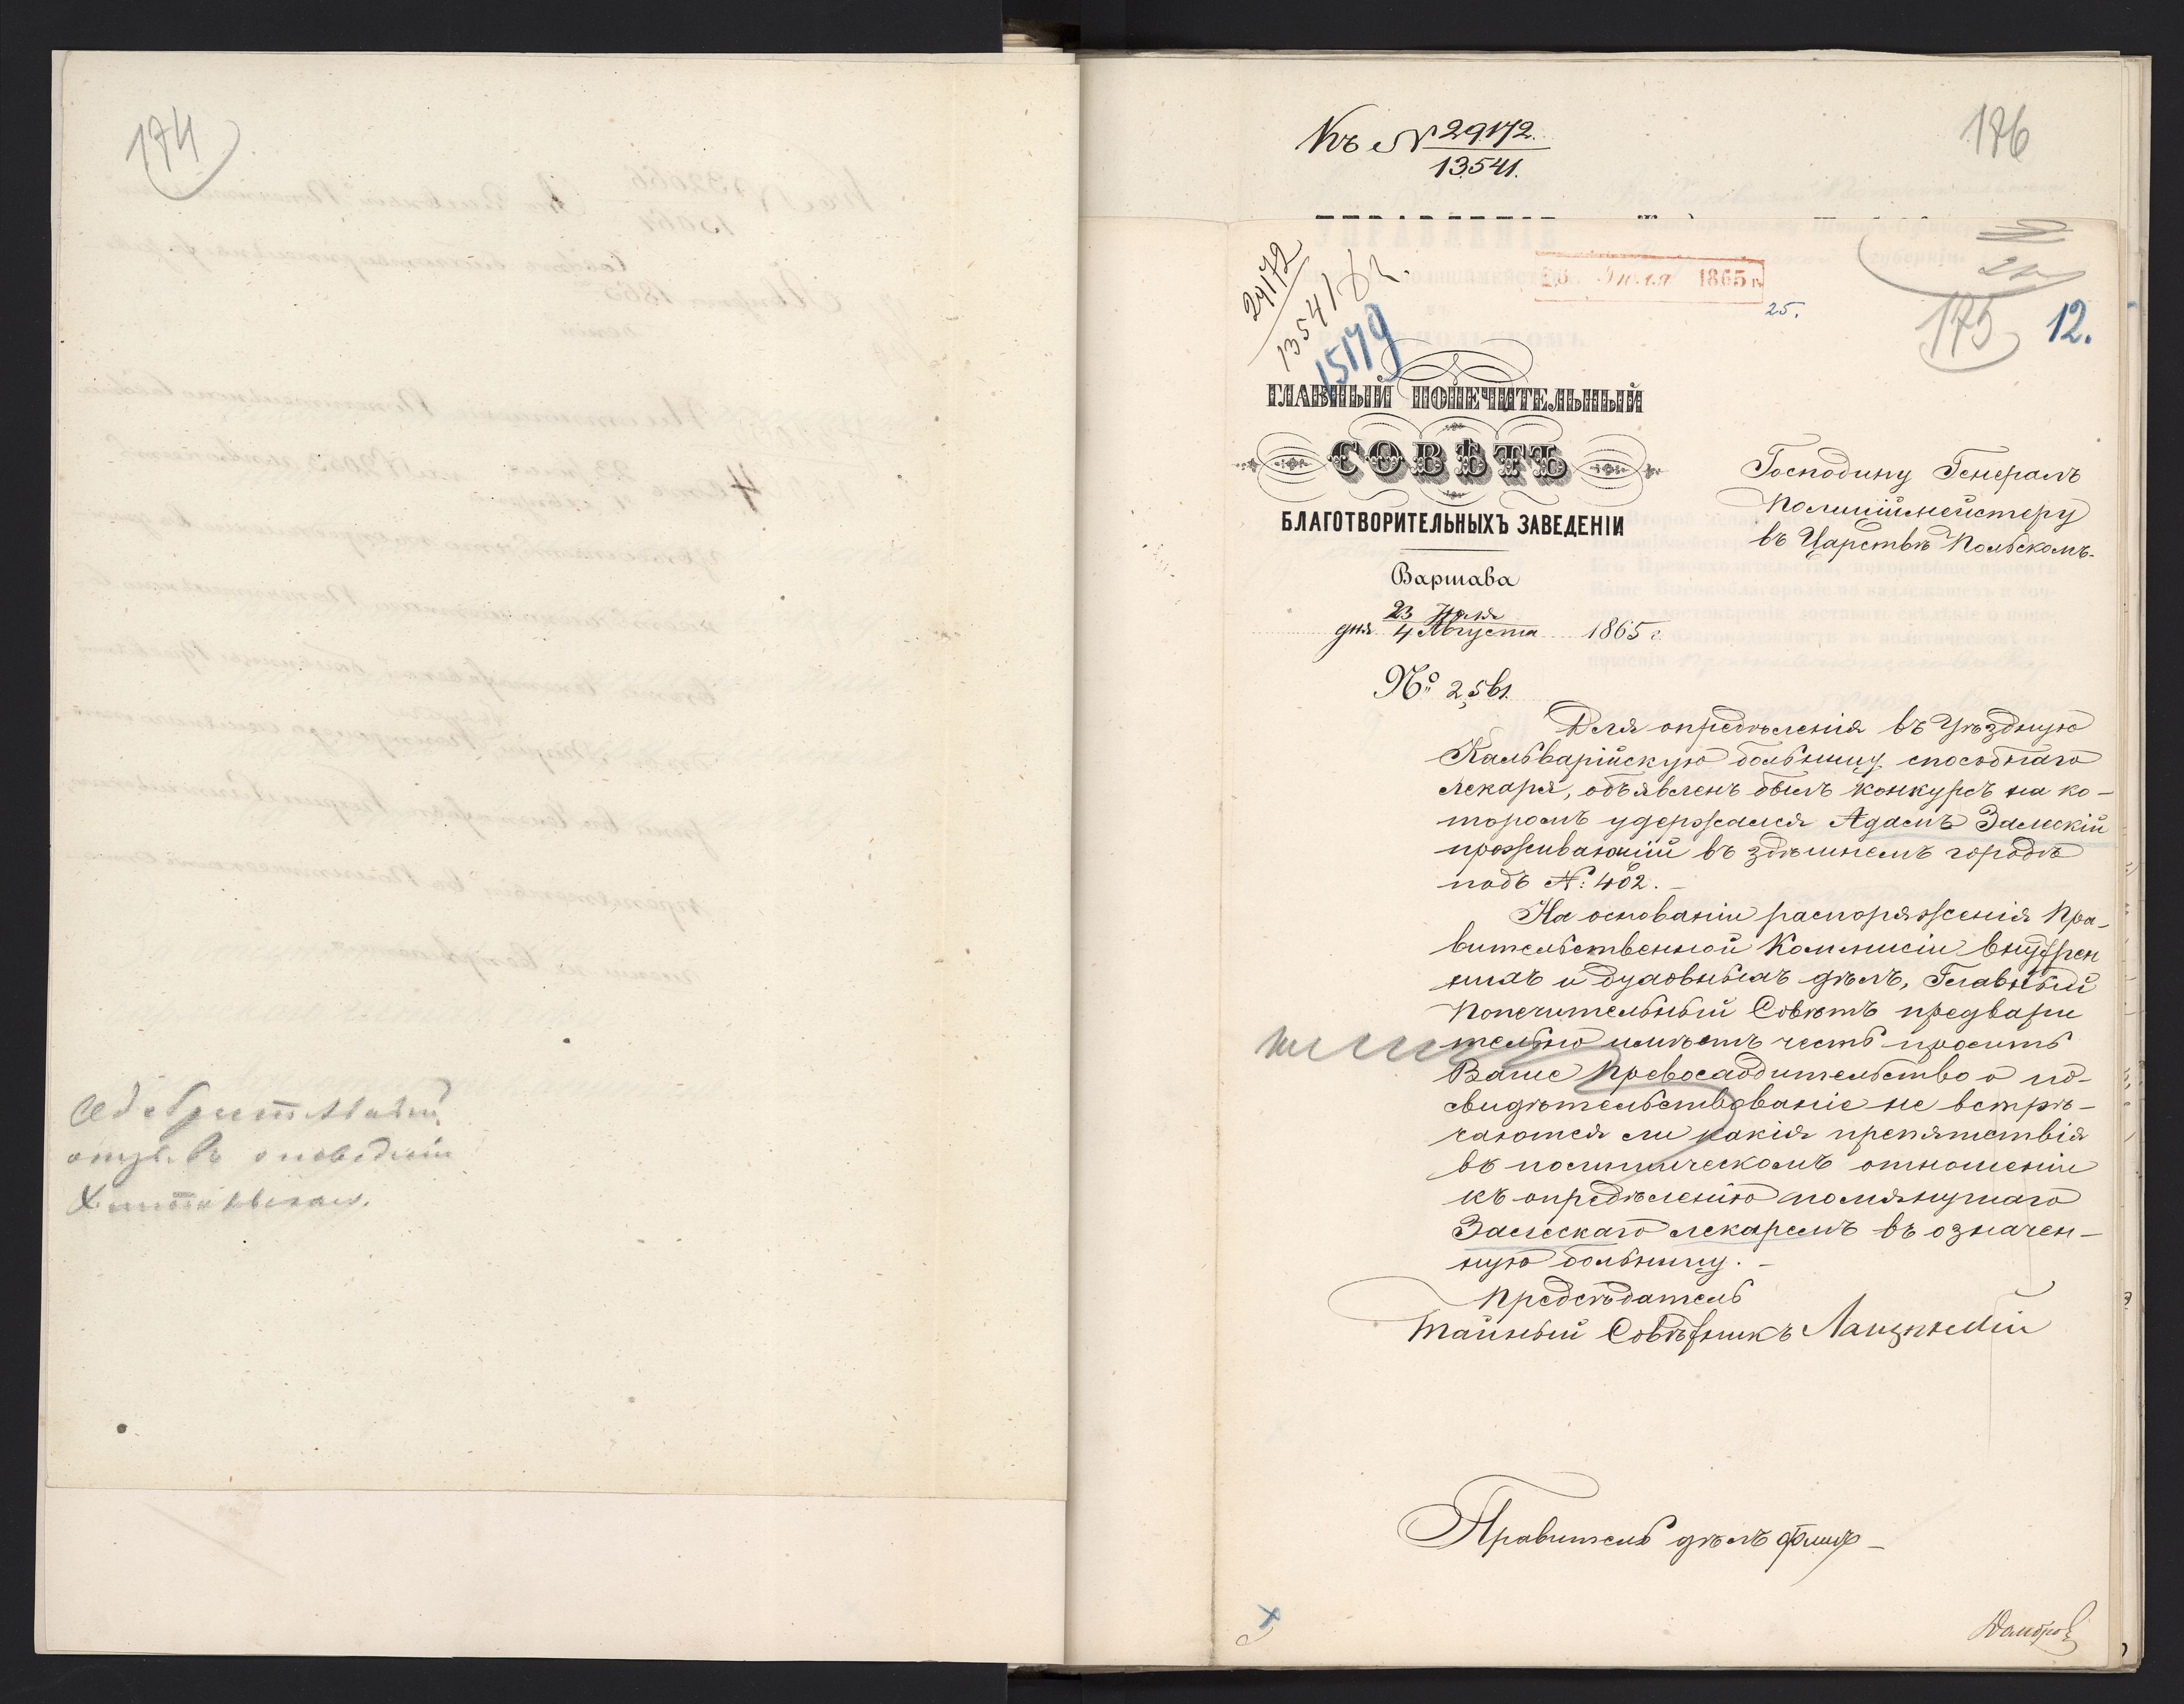 174
Одобрительный
отзывъ о поведеніи
Къ № 29172.
13541.
176
29172
13541
15179
25 Июля 1865 г.
25.
175
12.
ГЛАВНЫЙ ПОПЕЧИТЕЛЬНЫЙ
СОВѢТЪ
БЛАГОТВОРИТЕЛЬНЫХЪ ЗАВЕДЕНІИ
Варшава
23 Июля
дня 4 Августа 1865 г.
№ 2,561.
Господину Генералъ
Полиціймейстеру
въ Царствѣ Польскомъ.
Для опредѣленія въ Уѣздную
Кальварійскую больницу способнаго
лекаря, объявленъ былъ конкурсъ на ко-
торомъ удержался Адамъ Залескій
проживающій въ здѣшнемъ городѣ
подъ №: 402. –
На основаніи распоряженія Пра-
вительственной Коммисіи внутрен
нихъ и духовныхъ дѣлъ, Главный
Попечительный Совѣтъ предвари
тельно имѣетъ честь просить
Ваше Превосходительство о по-
свидѣтельствованіе не встрѣ-
чаются ли какія препятствія
въ политическомъ отношеніи
къ опредѣленію помянутаго
Залескаго лекаремъ въ означен-
ную больницу. –
Предсѣдатель
Тайный Совѣтникъ
Правитель дѣлъ